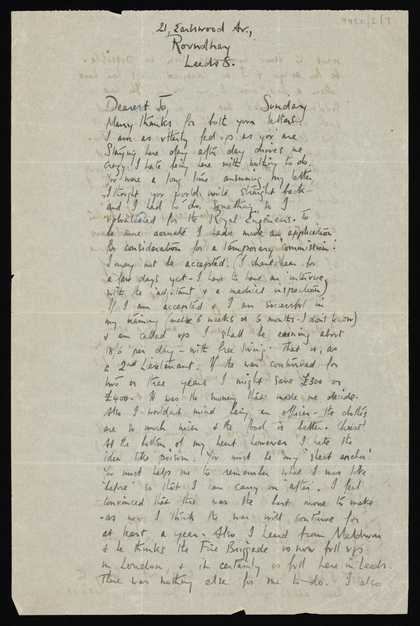 21, Earlswood Av.,
Roundhay
Leeds 8.
Dearest Jo, Sunday
Many thanks for both your letters.
I am as utterly fed-up as you are
Staying here day after day drives me
crazy. I hate being here with nothing to do.
You were a long time answering my letter.
I thought you would write straight back
and I had to do something so I
volunteered for the Royal Engineers. To
be more accurate I have made an application
for consideration for a temporary commission.
I may not be accepted. (I should hear for
a few days yet - I have to have an interview
with the adjutant & a medical inspection)
If I am accepted & I am successful in
my training (maybe 6 weeks or 6 months - I don't know)
& am called up I shall be earning about
18/6 per day - with free living. That is, as
a 2nd Lieutenant. If the war continued for
two or three years I might save £300 or
£400. It was the money that made me decide.
Also I wouldn't mind being an officer - the clothes
are so much nicer & the food is better.
At the bottom of my heart however I hate the
idea like poison. You must be my 'sheet anchor'
You must help me to remember what I was like
'before' so that I can carry on 'after'. I feel
convinced that this was the best move to make
as now I think the war will continue for
at least a year. Also, I heard from
& he thinks the Fire Brigade is now full up
in London, & it certainly is full here in Leeds.
There was nothing else for me to do. I also